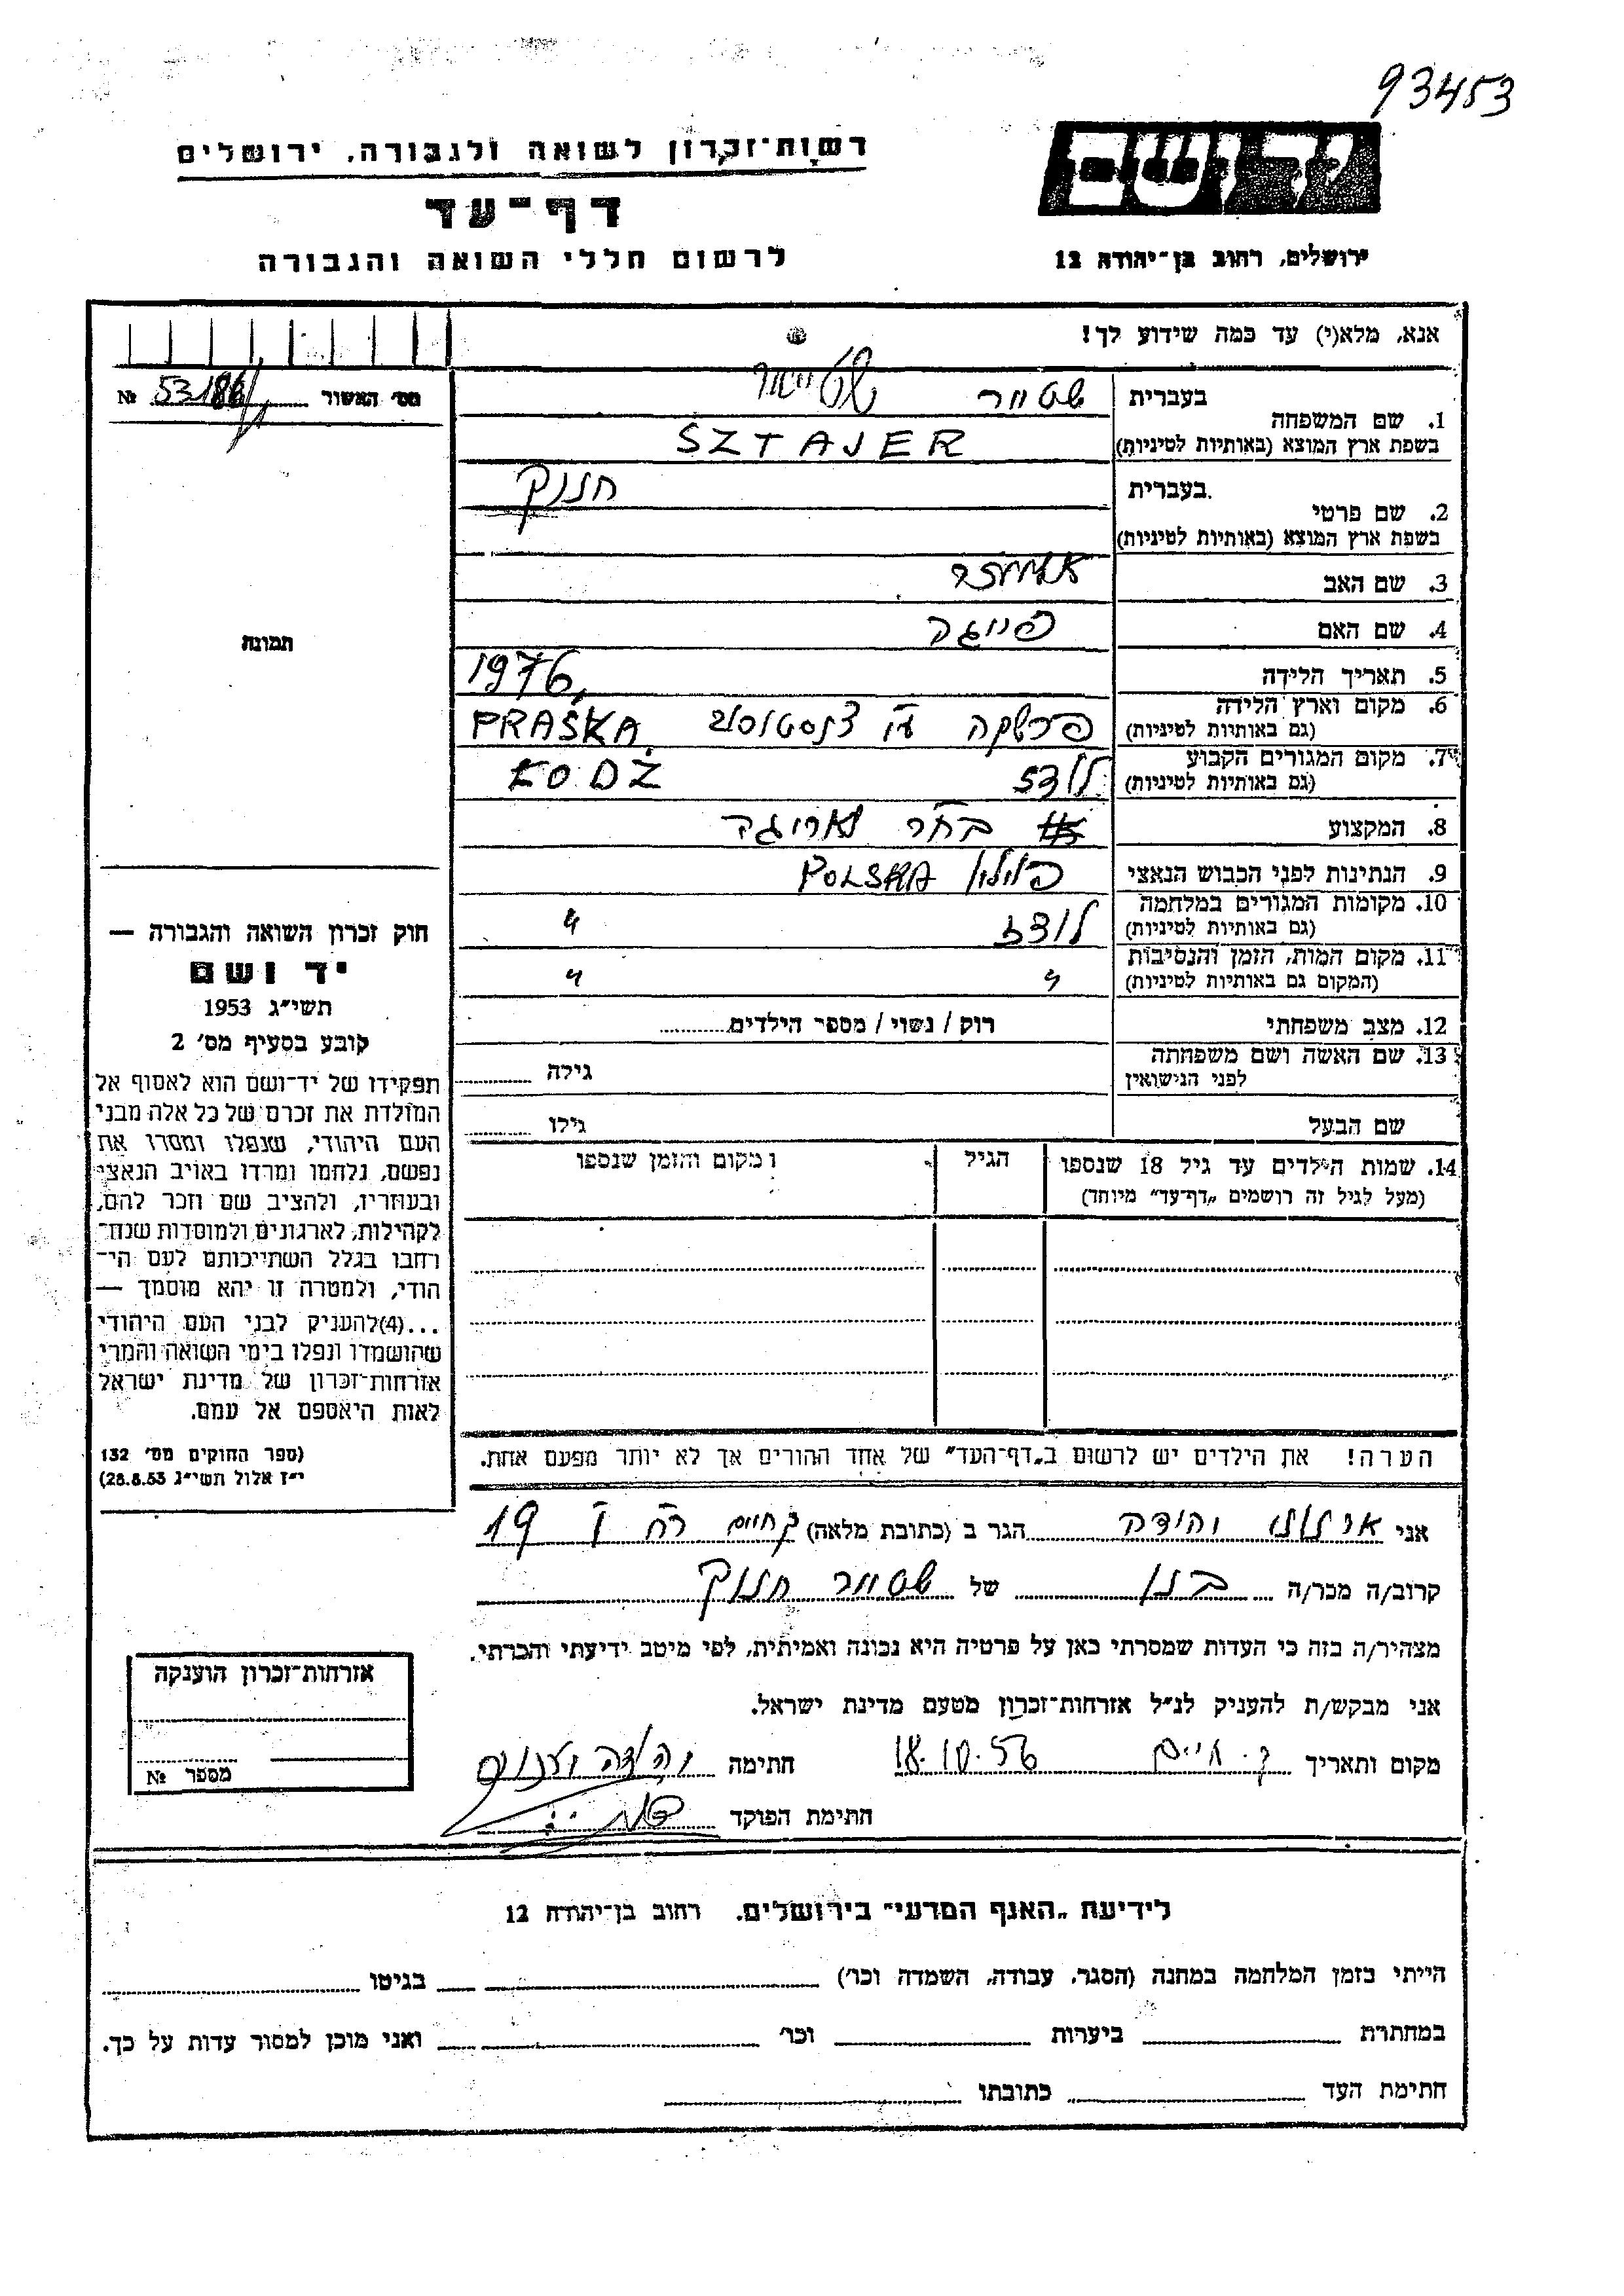 93453
יד ושם
רשות־זכרון לשואה ולגבורה, ירושלים
דף־עד
לרשום חללי השואה והגבורה
ירושלים, רחוב בן־יהודה 12
אנא, מלא(י) עד כמה שידוע לך!
מס׳ האשור № 53186
1. שם המשפחה בעברית שטייר שטייער
בשפת ארץ המוצא (באותיות לטיניות) SZTAJER
2. שם פרטי בעברית חנוך
בשפת ארץ המוצא (באותיות לטיניות)
3. שם האב
4. שם האם פייגה
תמונה
5. תאריך הלידה 1976
6. מקום וארץ הלידה (גם באותיות לטיניות) פרשקה PRAŠKA
7. מקום המגורים הקבוע (גם באותיות לטיניות) לודז ŁODZ
8. המקצוע בית אריגה
9. הנתינות לפני הכבוש הנאצי פולין POLSKA
10. מקומות המגורים במלחמה (גם באותיות לטיניות) לודז "
11. מקום המות, הזמן והנסיבות (המקום גם באותיות לטיניות) " "
12. מצב משפחתי רוק / נשוי / מספר הילדים
13. שם האשה ושם משפחתה לפני הנישואין גילה
שם הבעל גילו
14. שמות הילדים עד גיל 18 שנספו הגיל ומקום והזמן שנספו
(מעל לגיל זה רושמים „דף־עד״ מיוחד)
חוק זכרון השואה והגבורה —
יד ושם
תשי״ג 1953
קובע בסעיף מס׳ 2
תפקידו של יד־ושם הוא לאסוף אל
המולדת את זכרם של כל אלה מבני
העם היהודי, שנפלו ומסרו את
נפשם, נלחמו ומרדו באויב הנאצי
ובעוזריו, ולהציב שם וזכר להם,
לקהילות, לארגונים ולמוסדות שנח־
רחבו בגלל השתייכותם לעם הי־
הודי, ולמטרה זו יהא מוסמך —
...(4)להעניק לבני העם היהודי
שהושמדו ונפלו בימי השואה והמרי
אזרחות־זכרון של מדינת ישראל
לאות היאספם אל עמם.
(ספר החוקים מס׳ 132
י״ז אלול תשי״ג 28.8.53)
הערה! את הילדים יש לרשום ב„דף־העד״ של אחד ההורים אך לא יותר מפעם אחת.
אני יהודה הגר ב (כתובת מלאה) ק חיים רח ו 19
קרוב/ה מכר/ה בנו של שטייר חנוך
מצהיר/ה בזה כי העדות שמסרתי כאן על פרטיה היא נכונה ואמיתית, לפי מיטב ידיעתי והכרתי.
אני מבקש/ת להעניק לנ״ל אזרחות־זכרון מטעם מדינת ישראל.
מקום ותאריך ק. חיים 18.10.56 חתימה
חתימת הפוקד
אזרחות־זכרון הוענקה
מספר №
לידיעת „האגף המדעי״ בירושלים, רחוב בן־יהודה 12
הייתי בזמן המלחמה במחנה (הסגר, עבודה, השמדה וכו׳) בגיטו
במחתרת ביערות וכו׳ ואני מוכן למסור עדות על כך.
חתימת העד כתובתו